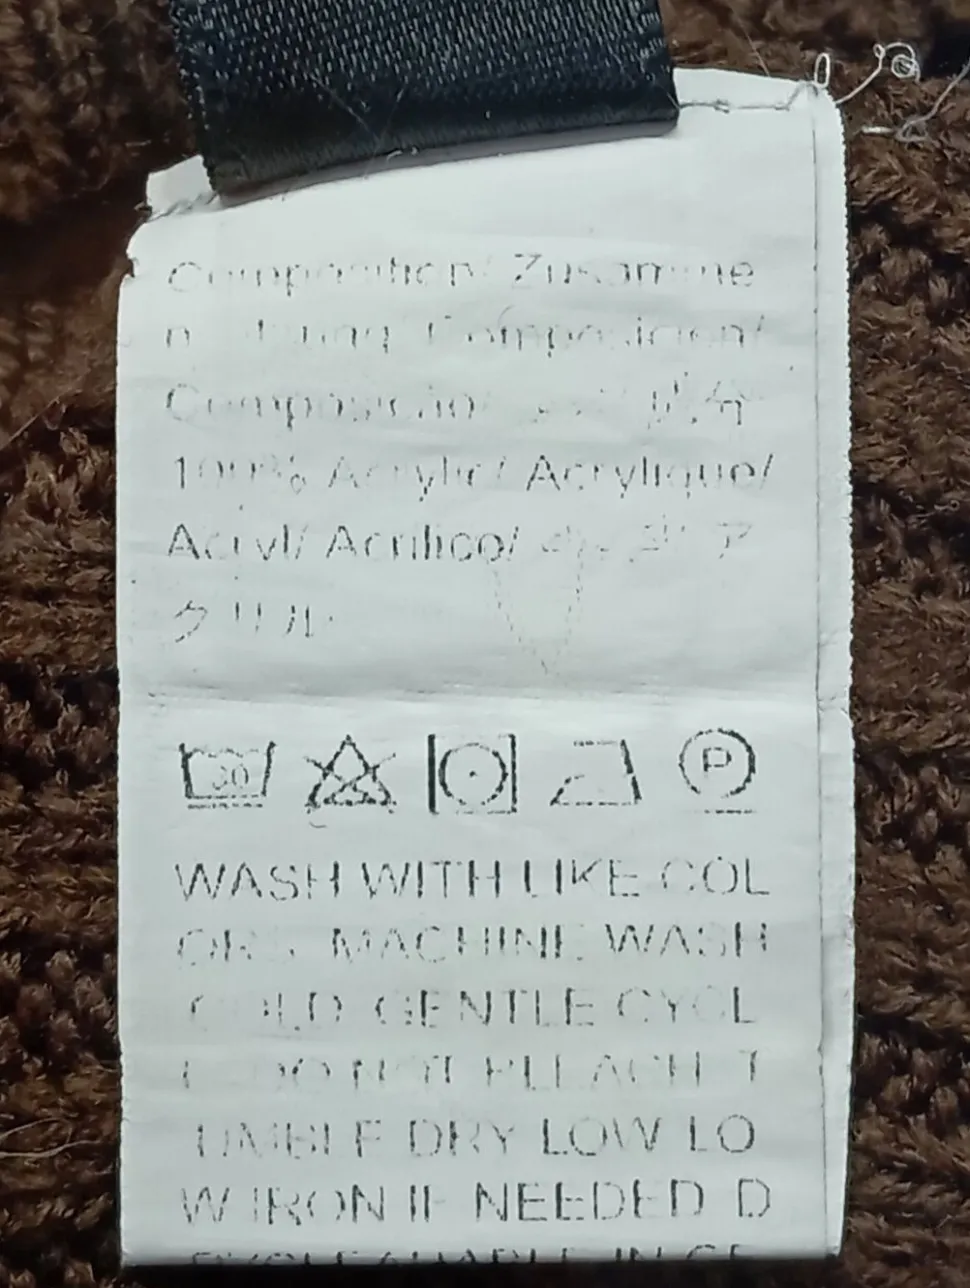 Composition/ Zusamme
nsetzung/ Composicion/
Composição/
100% Acrylic/ Acrylique/
Acryl/ Acrilico/ ア
クリル
30
P
WASH WITH LIKE COL
ORS MACHINE WASH
COLD GENTLE CYCL
E DO NOT BLEACH T
UMBLE DRY LOW LO
W IRON IF NEEDED D